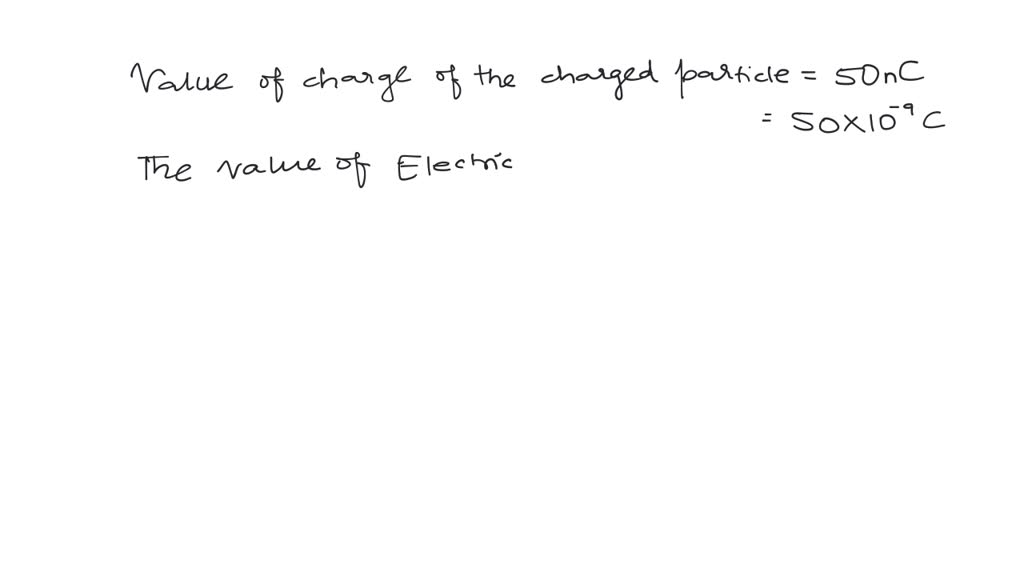 Value of charge of the charged particle = 50nC
= 50X10⁻⁹ C
The value of Electric